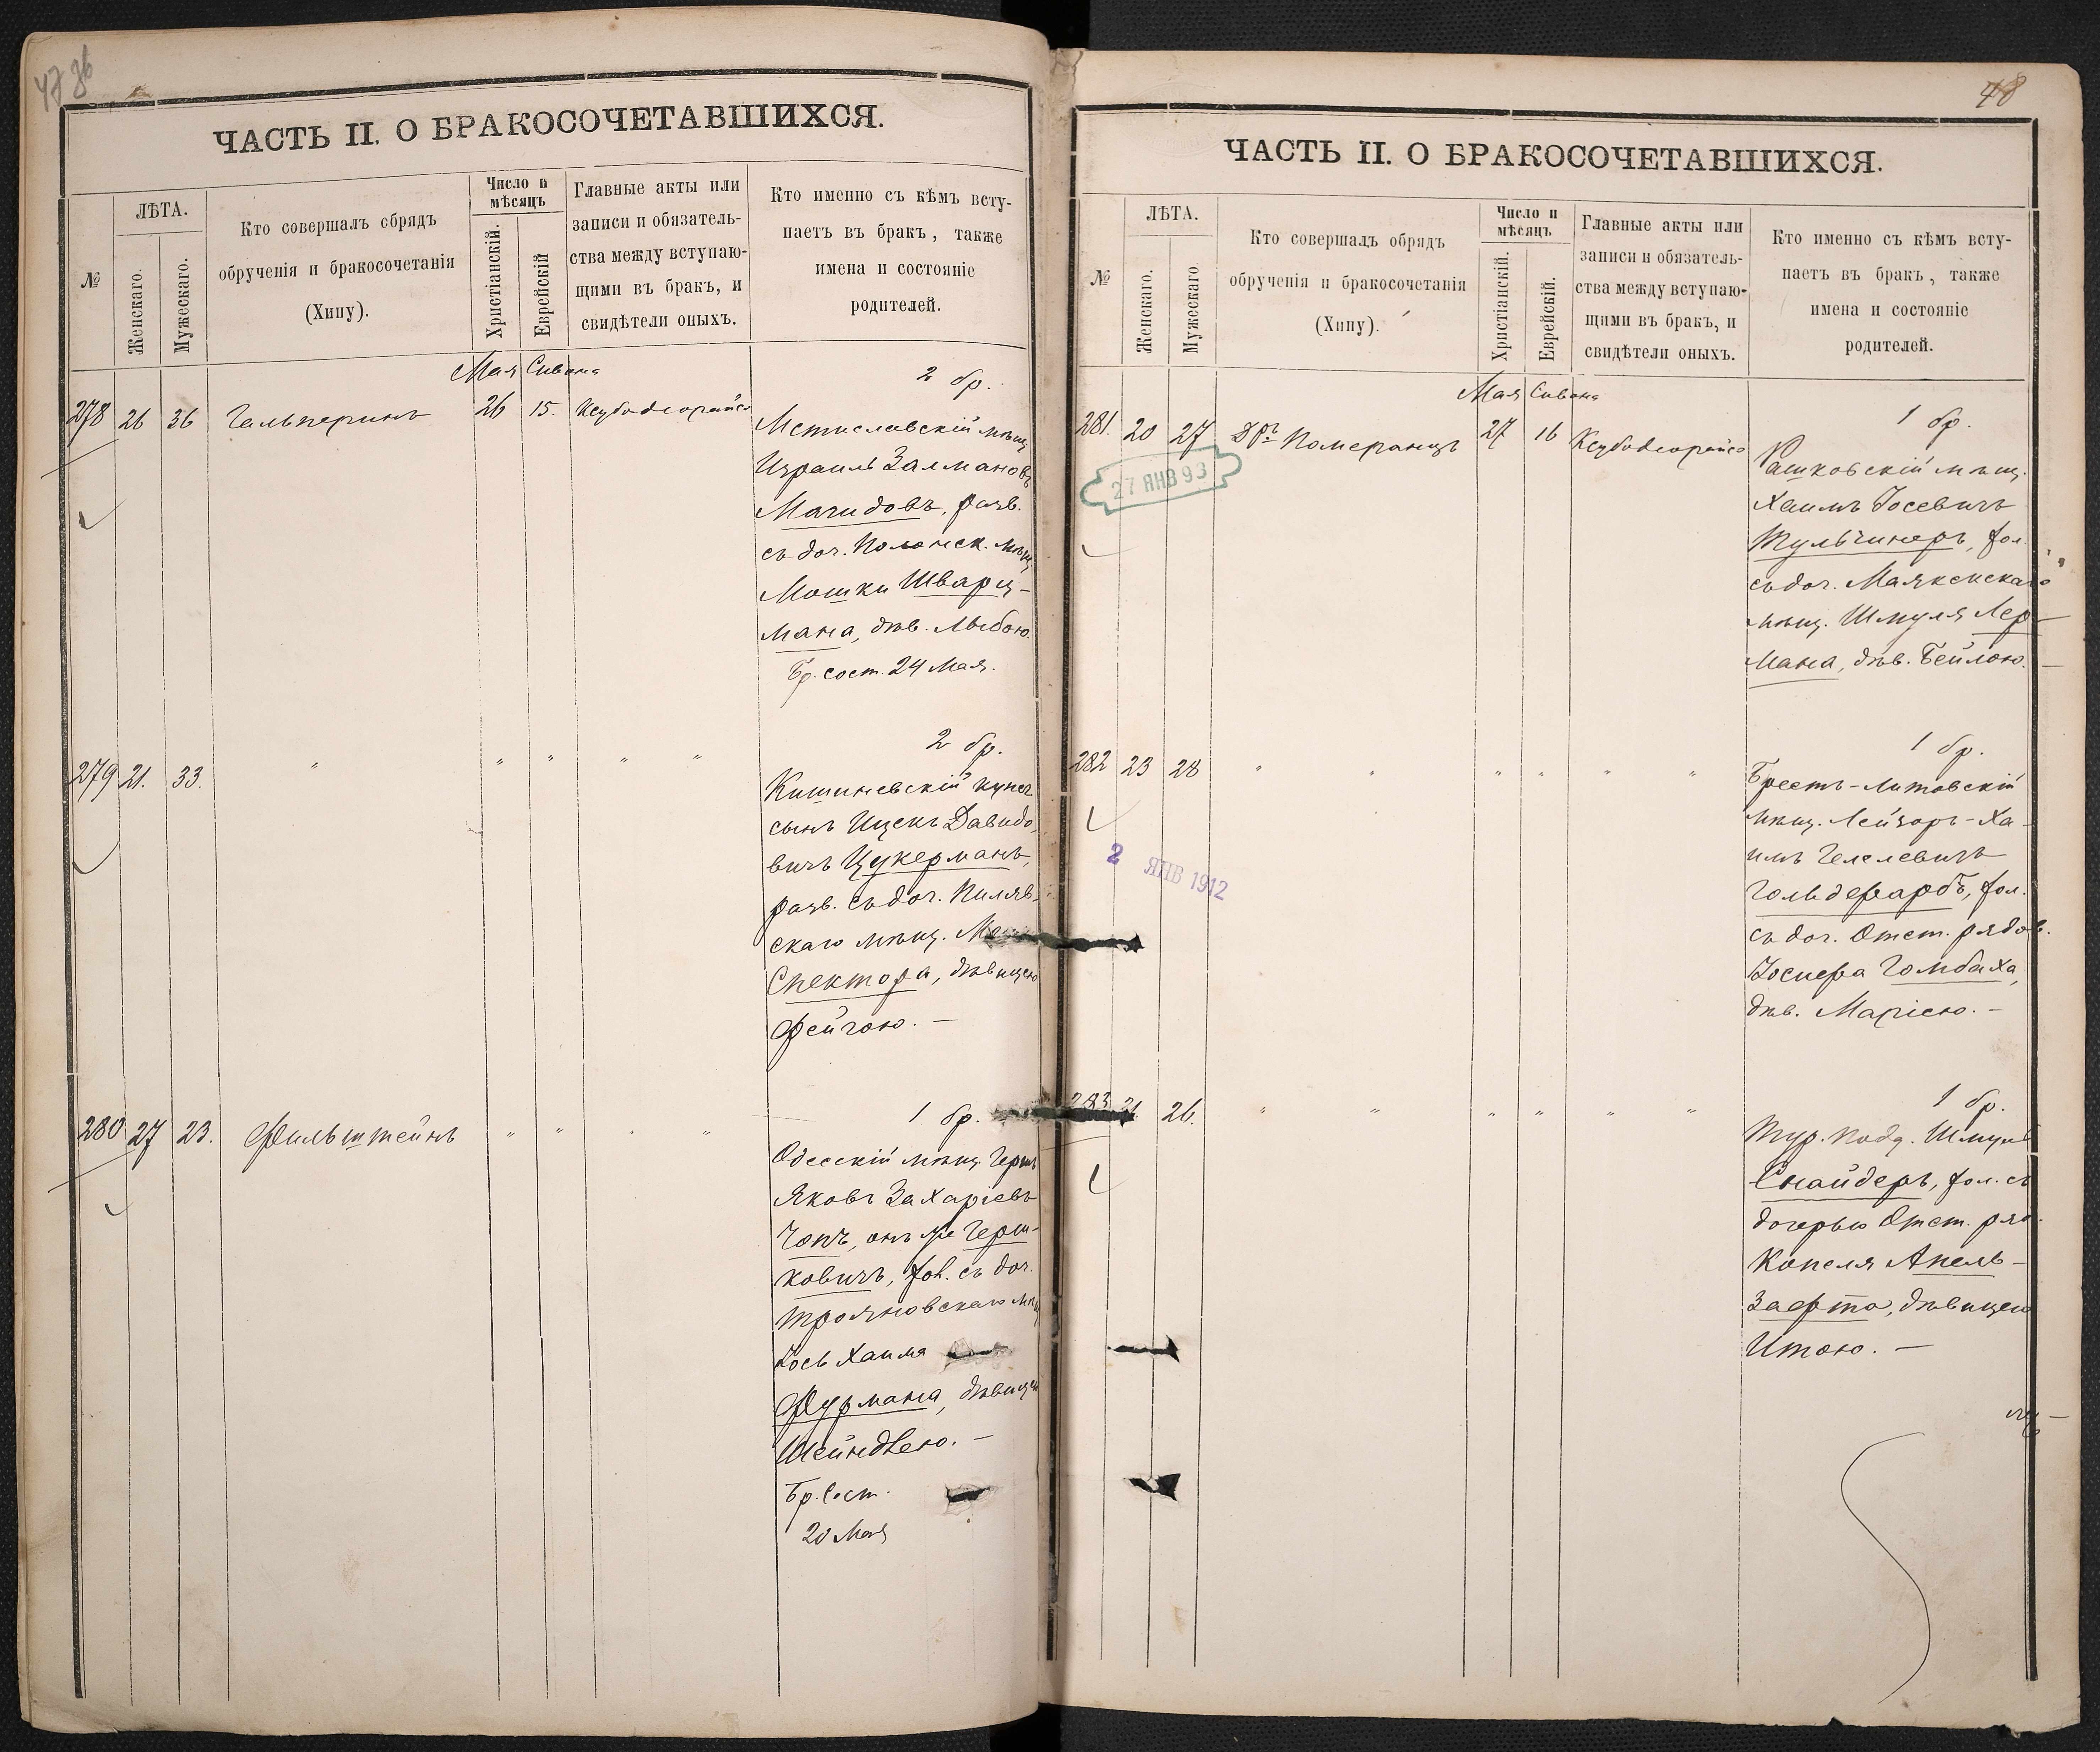 47 36
ЧАСТЬ II. О БРАКОСОЧЕТАВШИХСЯ.
№
ЛѢТА.
Женскаго.
Мужескаго.
Кто совершалъ обрядъ
обрученія и бракосочетанія
(Хипу).
Число и
мѣсяцъ
Христіанскій.
Еврейскій
Главные акты или
записи и обязатель-
ства между вступаю-
щими въ бракъ, и
свидѣтели оныхъ.
Кто именно съ кѣмъ всту-
паетъ въ бракъ, также
имена и состояніе
родителей.
Мая Сивана
2 бр.
278 26 36 Гальперинъ 26 15.
Мстиславскій мѣщ
Израиль Залмановъ
Магидовъ, разв.
съ доч. Полонск. мѣщ
Мошки Шварц-
мана, дѣв. Лыбою.
Бр. сост. 24 Мая.
2 бр.
279 21. 33. " " " " "
Кишиневскій купеч
сынъ Ицекъ Давидо
вичъ Цукерманъ,
разв. съ доч. Пиляв
скаго мѣщ.
Спектора, дѣвицею
Фейгою. —
1 бр.
280 27 23. Фильштейнъ " " " "
Одесскій мѣщ. Герш
Яковъ Захаріевъ
Чопъ, онъ же Герш-
ковичъ, хол. съ доч.
Трояновскаго мѣщ
Іось Хаима
Фурмана, дѣвицею
Шейндлею. —
Бр. сост.
20 Мая
48
ЧАСТЬ II. О БРАКОСОЧЕТАВШИХСЯ.
№
ЛѢТА.
Женскаго.
Мужескаго
Кто совершалъ обрядъ
обрученія и бракосочетанія
(Хипу).
Число и
мѣсяцъ
Христіанскій.
Еврейскій.
Главные акты или
записи и обязатель-
ства между вступаю-
щими въ бракъ, и
свидѣтели оныхъ.
Кто именно съ кѣмъ всту-
паетъ въ бракъ, также
имена и состояніе
родителей.
Мая Сивана
1 бр.
281. 20 27 Дръ Померанцъ 27 16
27 ЯНВ 93
Рашковскій мѣщ.
Хаимъ Іосевичъ
Тульчинеръ, хол.
съ доч. Маякскскаго
мѣщ. Шмуля Лер-
мана, дѣв. Бейлою. —
1 бр.
282 23 28 " " " " " "
2 ЯНВ 1912
Брестъ-Литовскій
мѣщ. Лейзоръ-Ха-
имъ Гелелевичъ
Гольдфарбъ, хол.
съ доч. Отст. рядов.
Іосифа Гомбаха,
дѣв. Маріею. —
1 бр.
283 21 26. " " " " " "
Тур. подд. Шмуль
Снайдеръ, хол. съ
дочерью Отст. ряд.
Копеля Апель-
Зафта, дѣвицею
Итою. —